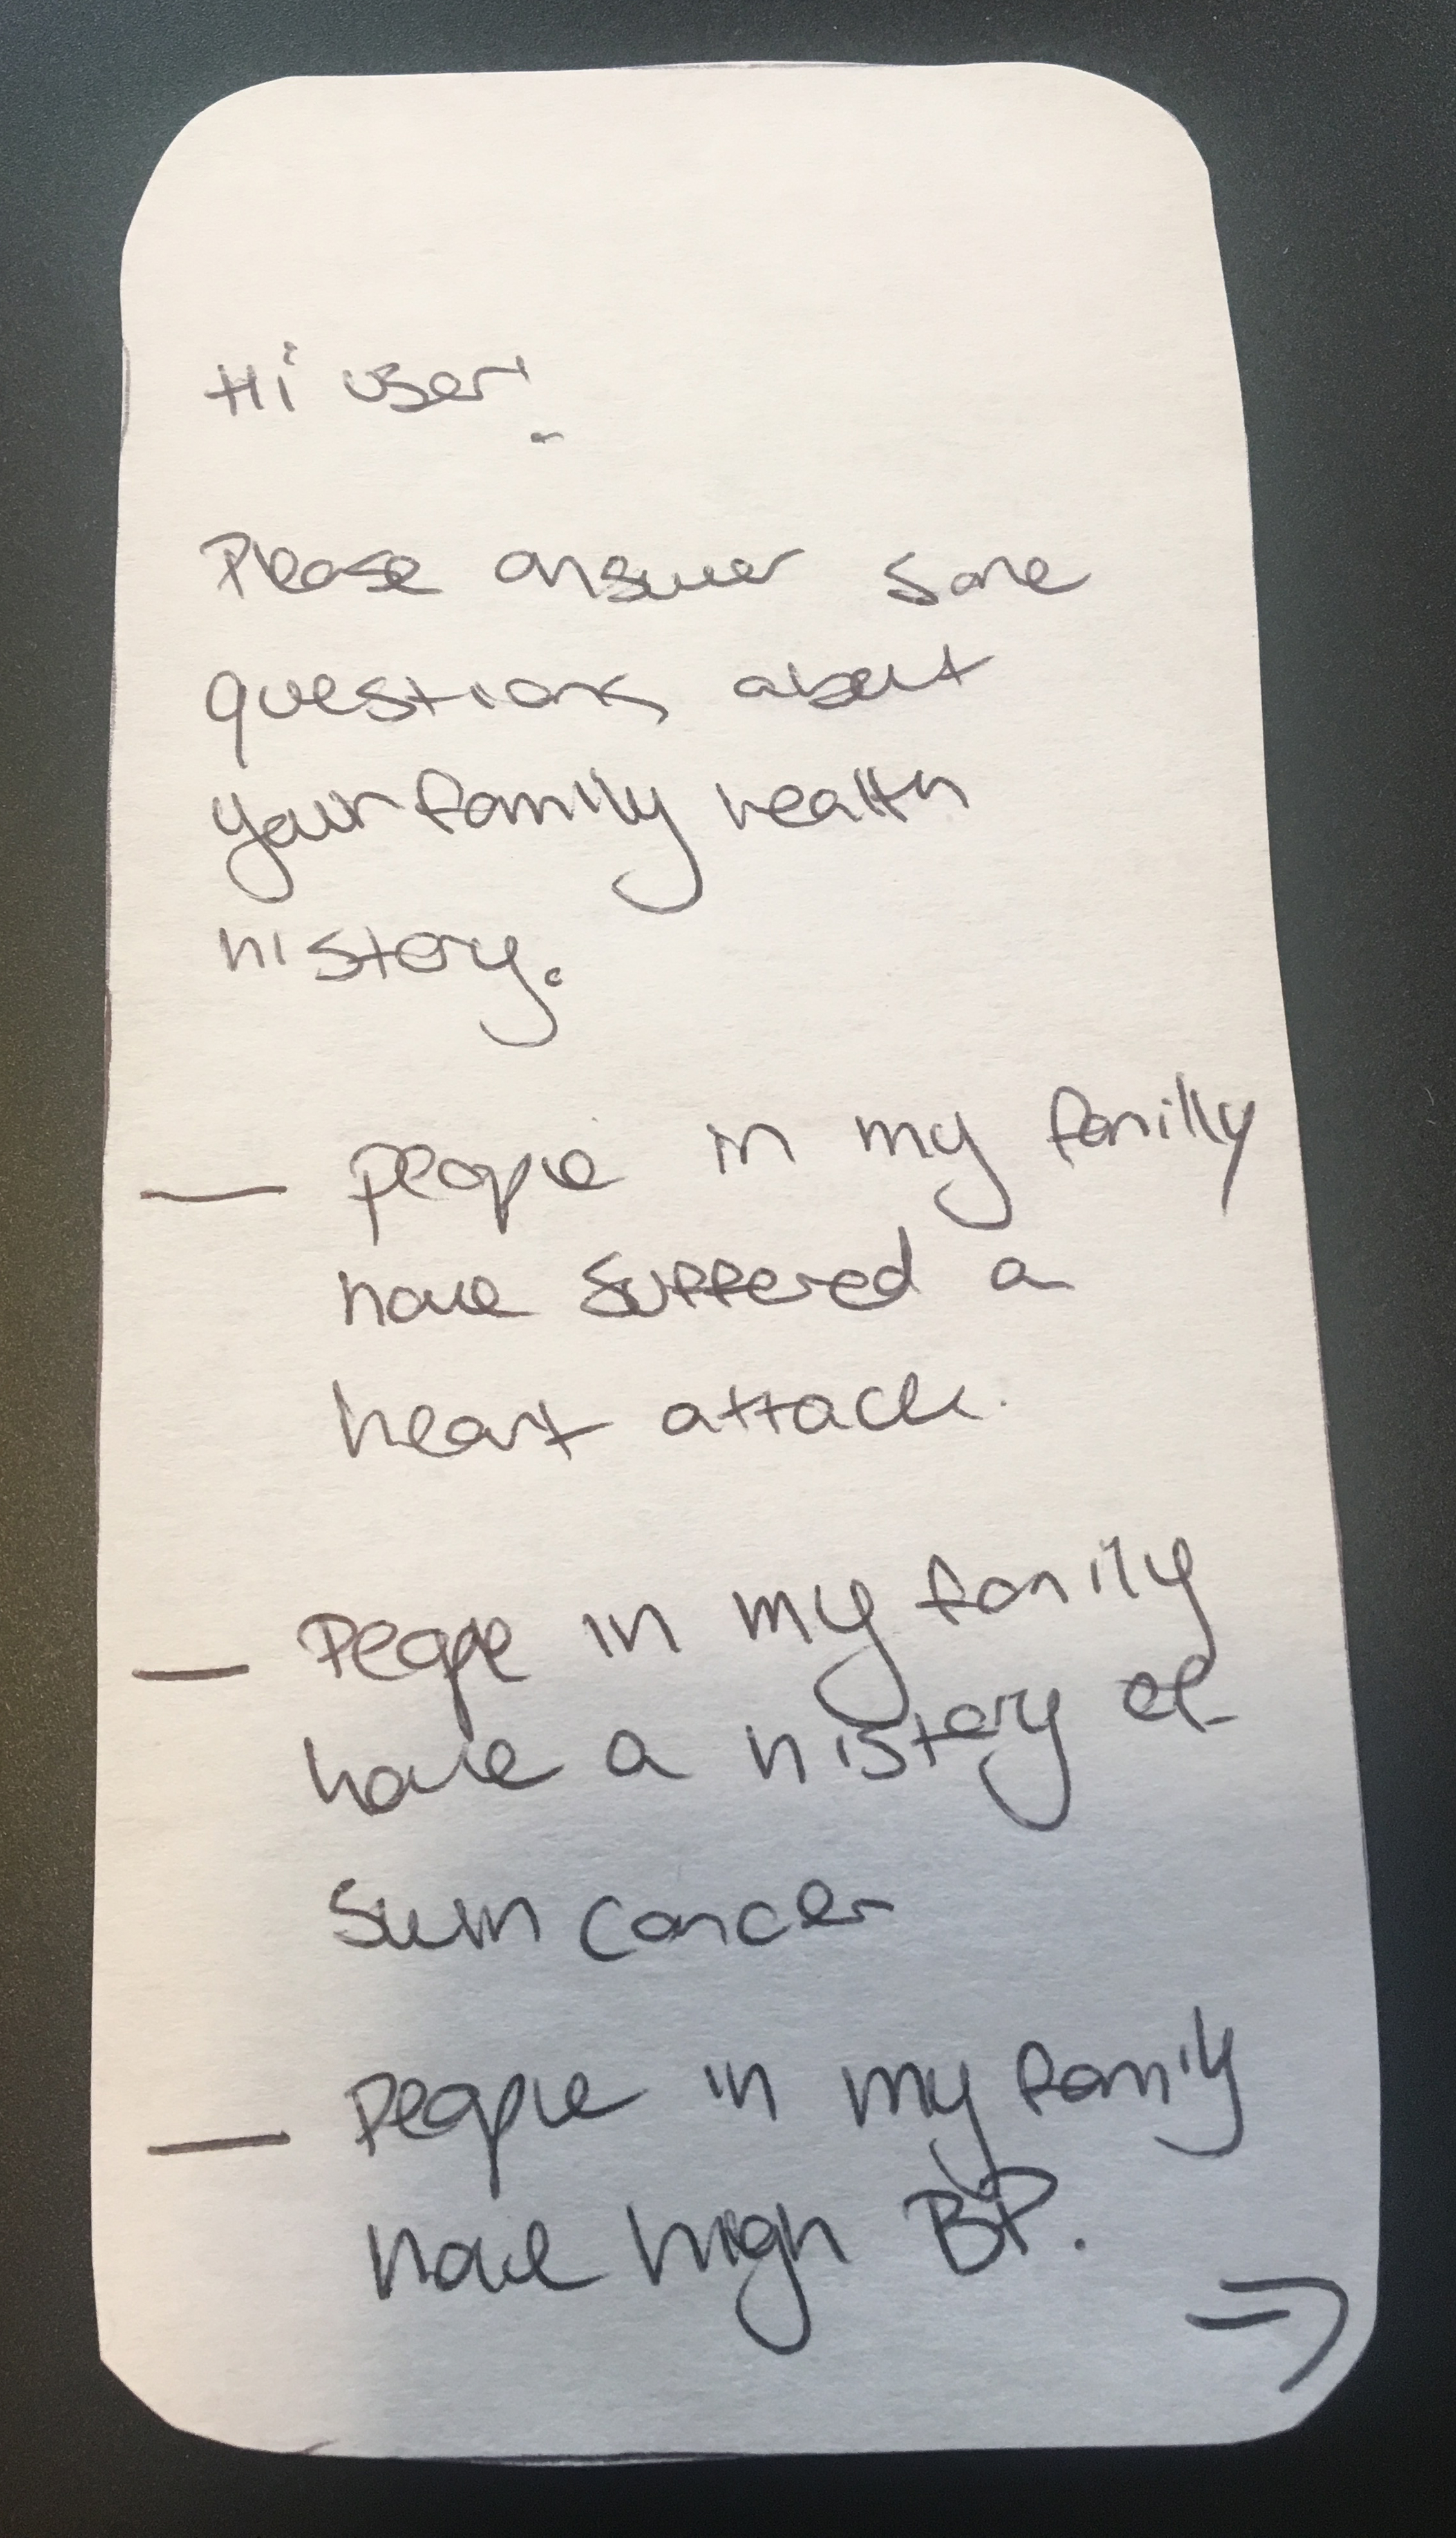 Hi user!
Please answer some
questions about
your family health
history.
— people in my familly
have suffered a
heart attack.
— People in my family
have a history of
Skin cancer
— People in my family
have high BP.